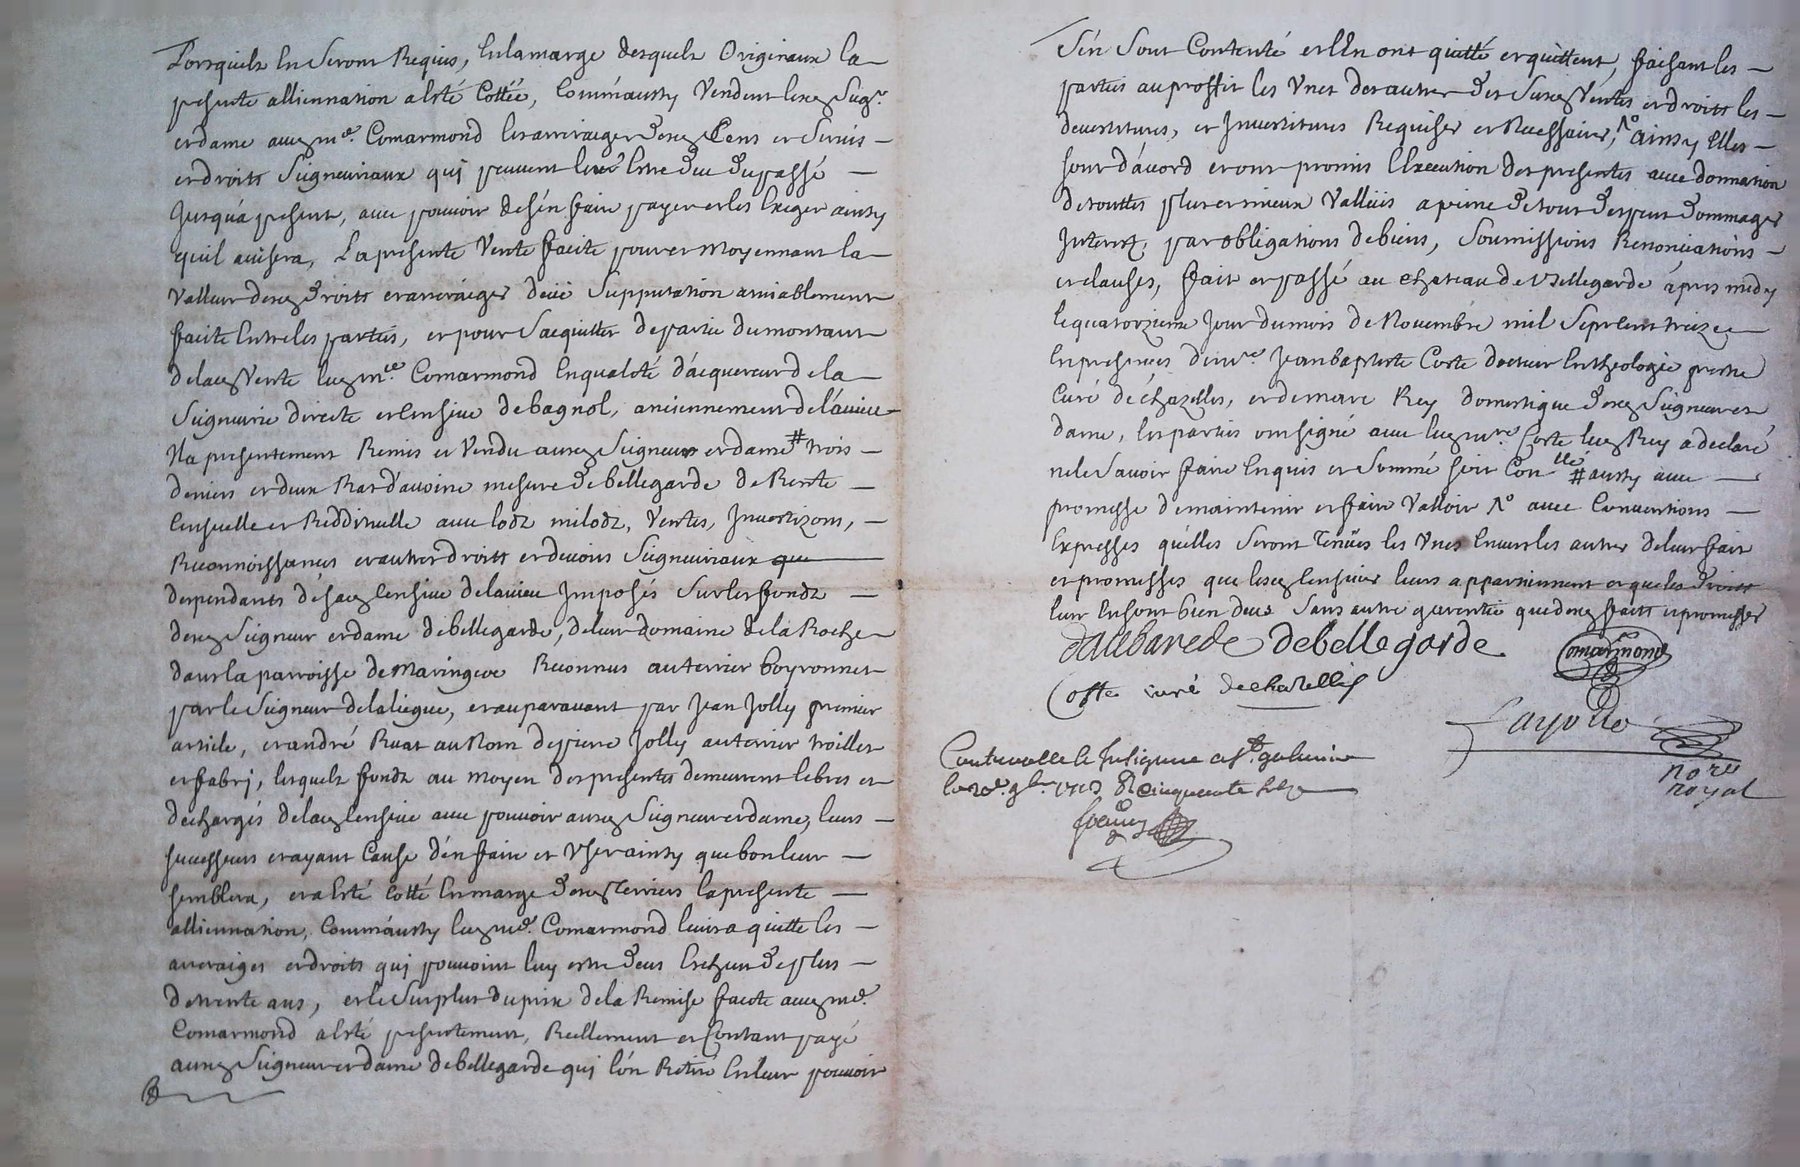 Lorsquels En Seront Requis, En la marge desquels Originaux la
presente alliennation a Esté Cottée, Comm'aussy Vendent lesd Sugr
et dame aud mr Comarmond les arreraiges desd Cens et Servis
et droits Seigneuriaux qui peuvent leur Estre deu du passé
Jusqu'a present, avec pouvoir de s'en faire payer et les Exiger ainsy
quil avisera, La presente Vente faitte pour et moyennant la
Valleur desd droits et arreraiges deüe Supputation amiablement
faicte Entre les parties, et pour S'acquitter de partie du montant
de lad Vente led mre Comarmond En qualité d'acquereur de la
Seigneurie directe et Censive de bagnol, anciennement de l'avieu
Na presentement Remis et Vendu ausd Seigneur et dame # trois
deniers et deux Ras d'avoine mesure de bellegarde de Rente
Censuelle et Reddituelle avec lodz milodz, Ventes, Investizons,
Reconnoissances et autres droits et devoirs Seigneuriaux que
despendants de sad Censive de lavieu Imposés Sur les fondz
desd Seigneur et dame de bellegarde, de leur domaine de la Roche
dans la parroisse de Maringe Reconnus au terrier boyronnet
par le Seigneur de la liegue, et auparavant par Jean Jolly premier
article, et andré Ruat au Nom de pierre Jolly au terrier troillet
et fabri, lesquels fondz au moyen des presentes demeurent libres et
dechargés de lad Censive avec pouvoir ausd Seigneur et dame, leurs
successeurs et ayant Cause d'en faire et User ainsy que bon leur
semblera, et a Esté Cotté En marge desd Terriers la presente
alliennation, Comm'aussy led mr Comarmond leur a quitté les
arreraiges et droits qui pouvoint luy estre deus Escheus de plus
de trente ans, et le Surplus du prix de la Remise faicte aud mr
Comarmond a Esté presentement, Reellement et Contant payé
ausd Seigneur et dame de bellegarde qui l'ón Retiré En leur pouvoir
S'en Sont Contenté et l'En ont quitté et quittent, faisant les
parties au proffit les Unes des autres des Susd Ventes et droits les
devestitures, et Investitures Requises et Necessaires, No ainsy Elles
sont d'acord et ont promis l'Execution des presentes avec donnation
de touttes plus et mieux Vallues a peine de tous despens dommages
Interest, par obligations de biens, Soumissions Renonciations
et clauses, fait et passé au chateau de Bellegarde âpres midy
le quatorzieme Jour du mois de Novembre mil Sept cent treize
En presences de mre Jean baptiste Coste docteur En theologie prestre
Curé de chazelles, et de marc Rey domestique desd Seigneur et
dame, les parties ont signé avec led mre Coste led Rey a declaré
ne le Savoir faire Enquis et Sommé soit Conllé # aussy avec
promesse de maintenir et faire Valloir No avec Conventions
Expresses quelles Seront Tenües les Unes Envers les autres de leur fait
et promesses que lesd Censives leurs appartiennent et que les droits
leur En sont bien deus Sans autre garentie que desd faits et promesses
dalbarede debellegarde Comarmond
Coste curé de chazelles
Fayolle
nore
royal
Controuollé le Insigné a St galmier
le 20e 9bre 1713 R cinquante